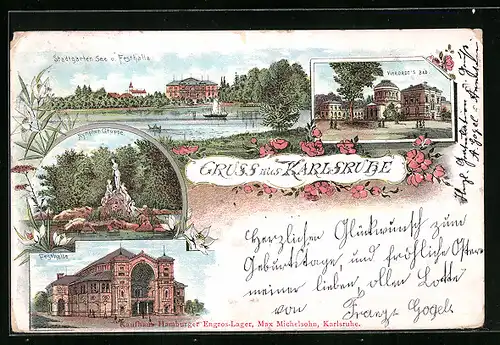 Stadtgarten See u. Festhalle
Vierordt's Bad
Nymfen Gruppe
GRUSS aus KARLSRUHE
Festhalle
Herzlichen Glückwunsch zum
Geburtstage, und fröhliche Ostern
meiner lieben, ollen Lotte
von
Kaufhaus Hamburger Engros-Lager, Max Michelsohn, Karlsruhe.